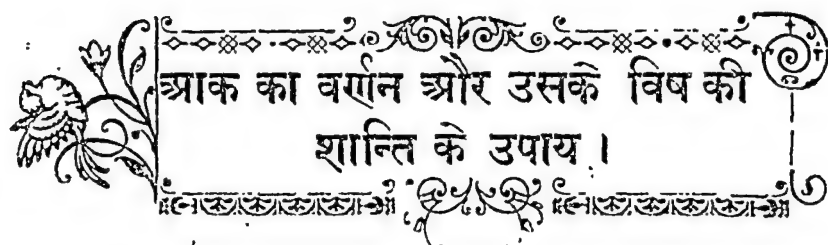 आक का वर्णन और उसके विष की
शान्ति के उपाय ।